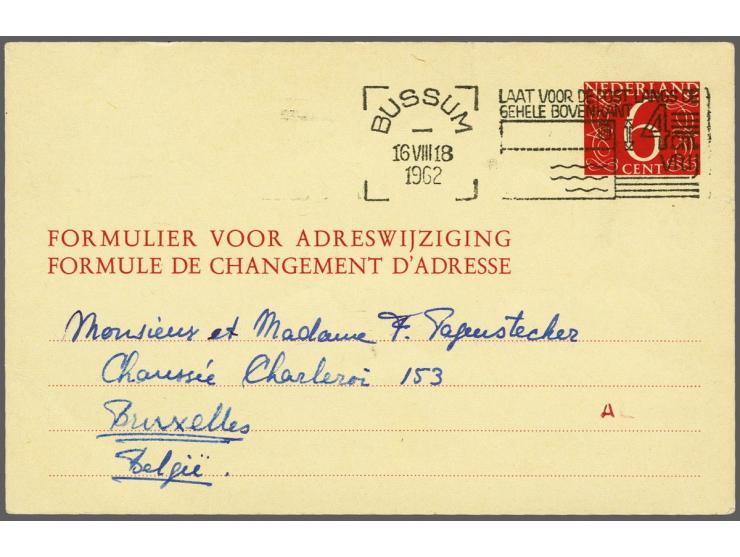 BUSSUM
16 VIII 18
1962
LAAT VOOR DE POST LANGS DE
GEHELE BOVENKANT
4
VRIJ
NEDERLAND
6
CENT
FORMULIER VOOR ADRESWIJZIGING
FORMULE DE CHANGEMENT D'ADRESSE
Monsieur et Madame F. Pagenstecher
Chaussée Charleroi 153
Bruxelles
België.
A